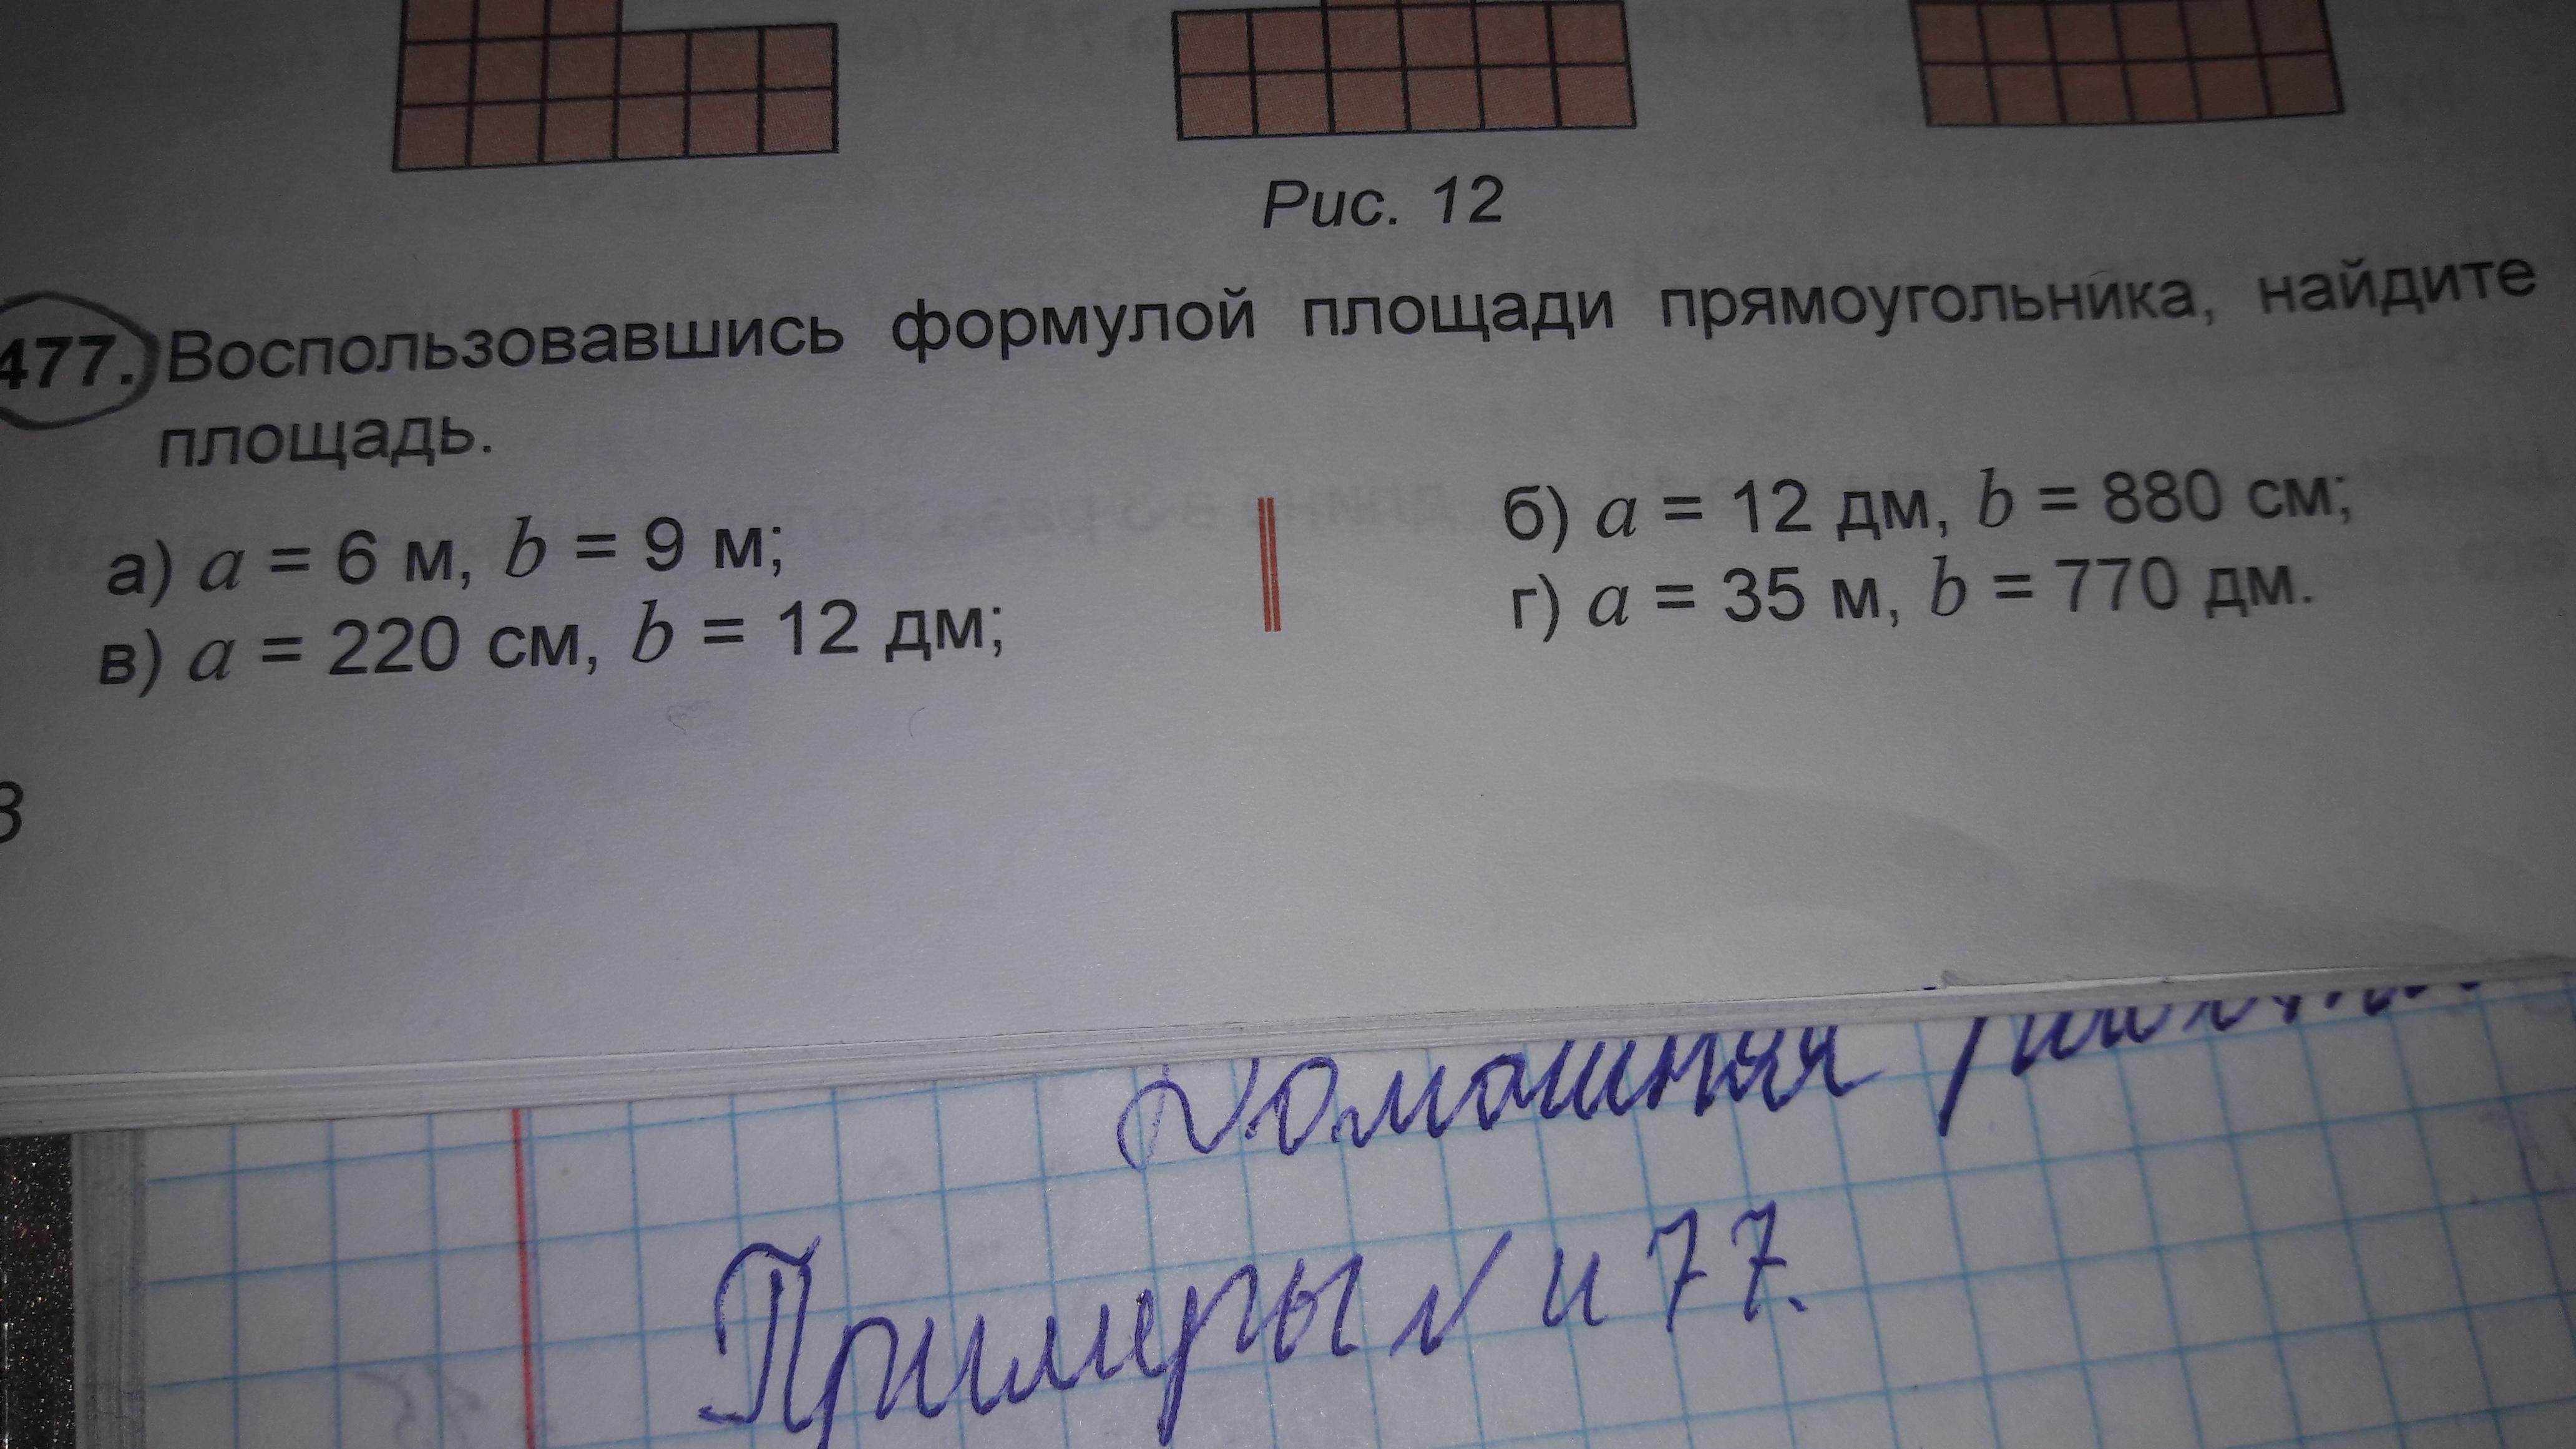 Рис. 12
477. Воспользовавшись формулой площади прямоугольника, найдите
площадь.
а) a = 6 м, b = 9 м;
б) a = 12 дм, b = 880 см;
в) a = 220 см, b = 12 дм;
г) a = 35 м, b = 770 дм.
Домашняя
Примеры N 477.